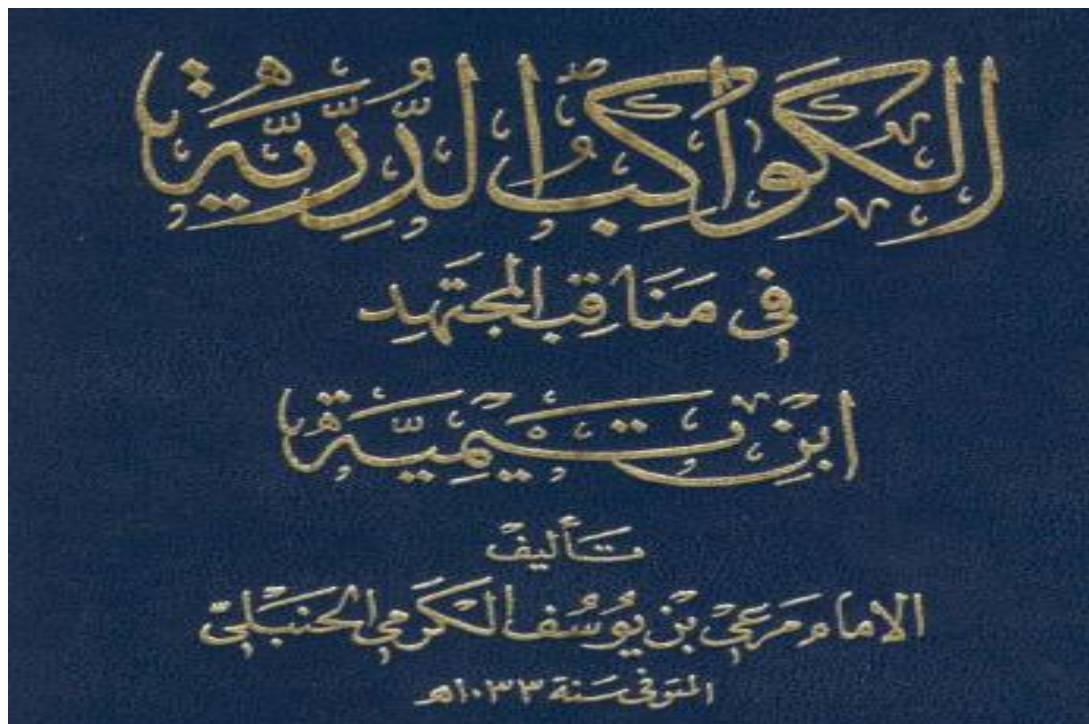 الكَوَاكِبُ الدُّرِّيَّة
في مَنَاقِب المجتَهِد
ابنِ تَيْمِيَّة
تأليف
الامام مَرعي بن يُوسُف الكَرمي الحَنبَلي
المتوفى سَنة ١٠٣٣هـ